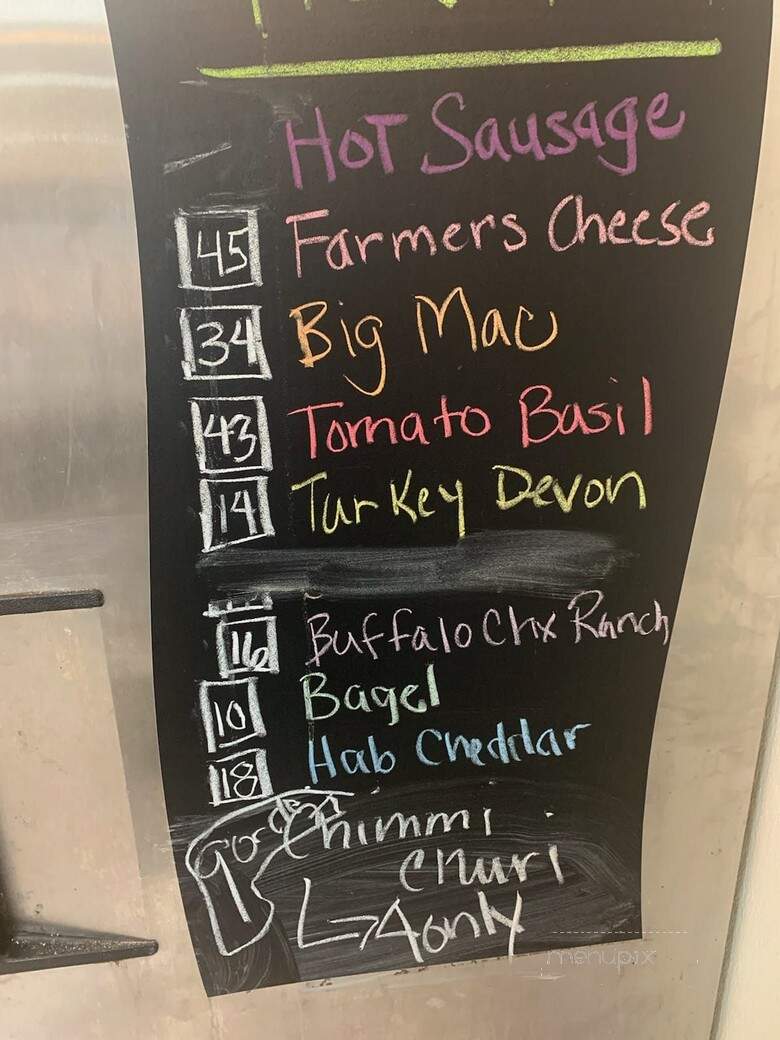 Hot Sausage
45 Farmers Cheese
34 Big Mac
43 Tomato Basil
14 Turkey Devon
16 Buffalo Chx Ranch
10 Bagel
18 Hab Cheddar
Chimmi
churi
4 only
menupix